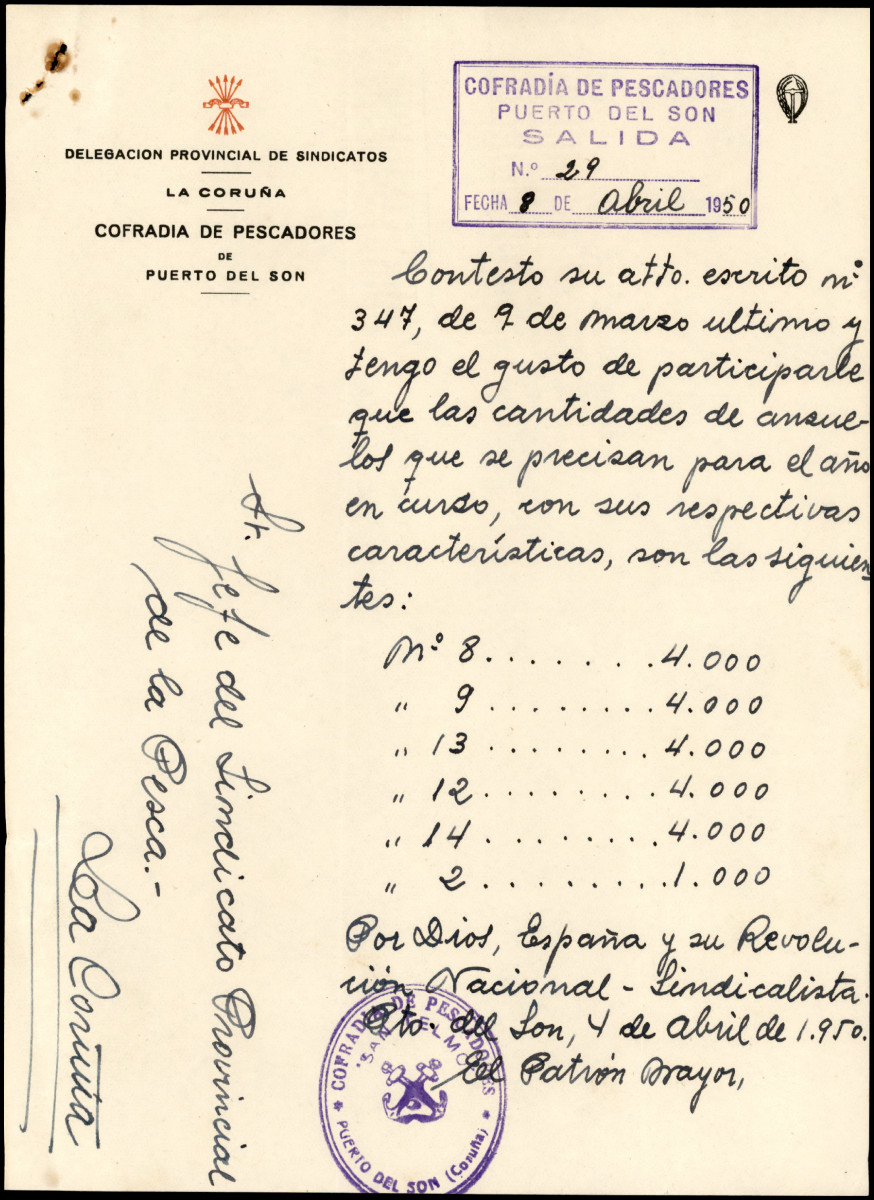 DELEGACION PROVINCIAL DE SINDICATOS
LA CORUÑA
COFRADIA DE PESCADORES
DE
PUERTO DEL SON
COFRADÍA DE PESCADORES
PUERTO DEL SON
SALIDA
N.º 29
FECHA 8 DE Abril 1950
Contesto su atto. escrito nº
347, de 9 de marzo ultimo y
tengo el gusto de participarle
que las cantidades de anzue-
los que se precisan para el año
en curso, con sus respectivas
características, son las siguien
tes:
Nº 8 . . . . . . . 4.000
" 9 . . . . . . . . 4.000
" 13 . . . . . . . . 4.000
" 12 . . . . . . . . 4.000
" 14 . . . . . . . . 4.000
" 2 . . . . . . . . 1.000
Por Dios, España y su Revolu-
ción Nacional - Sindicalista.
Pto. del Son, 4 de Abril de 1.950.
El Patrón Mayor,
COFRADIA DE PESCADORES
"SAN TELMO"
PUERTO DEL SON (Coruña)
Sr. Jefe del Sindicato Provincial
de la Pesca.-
La Coruña